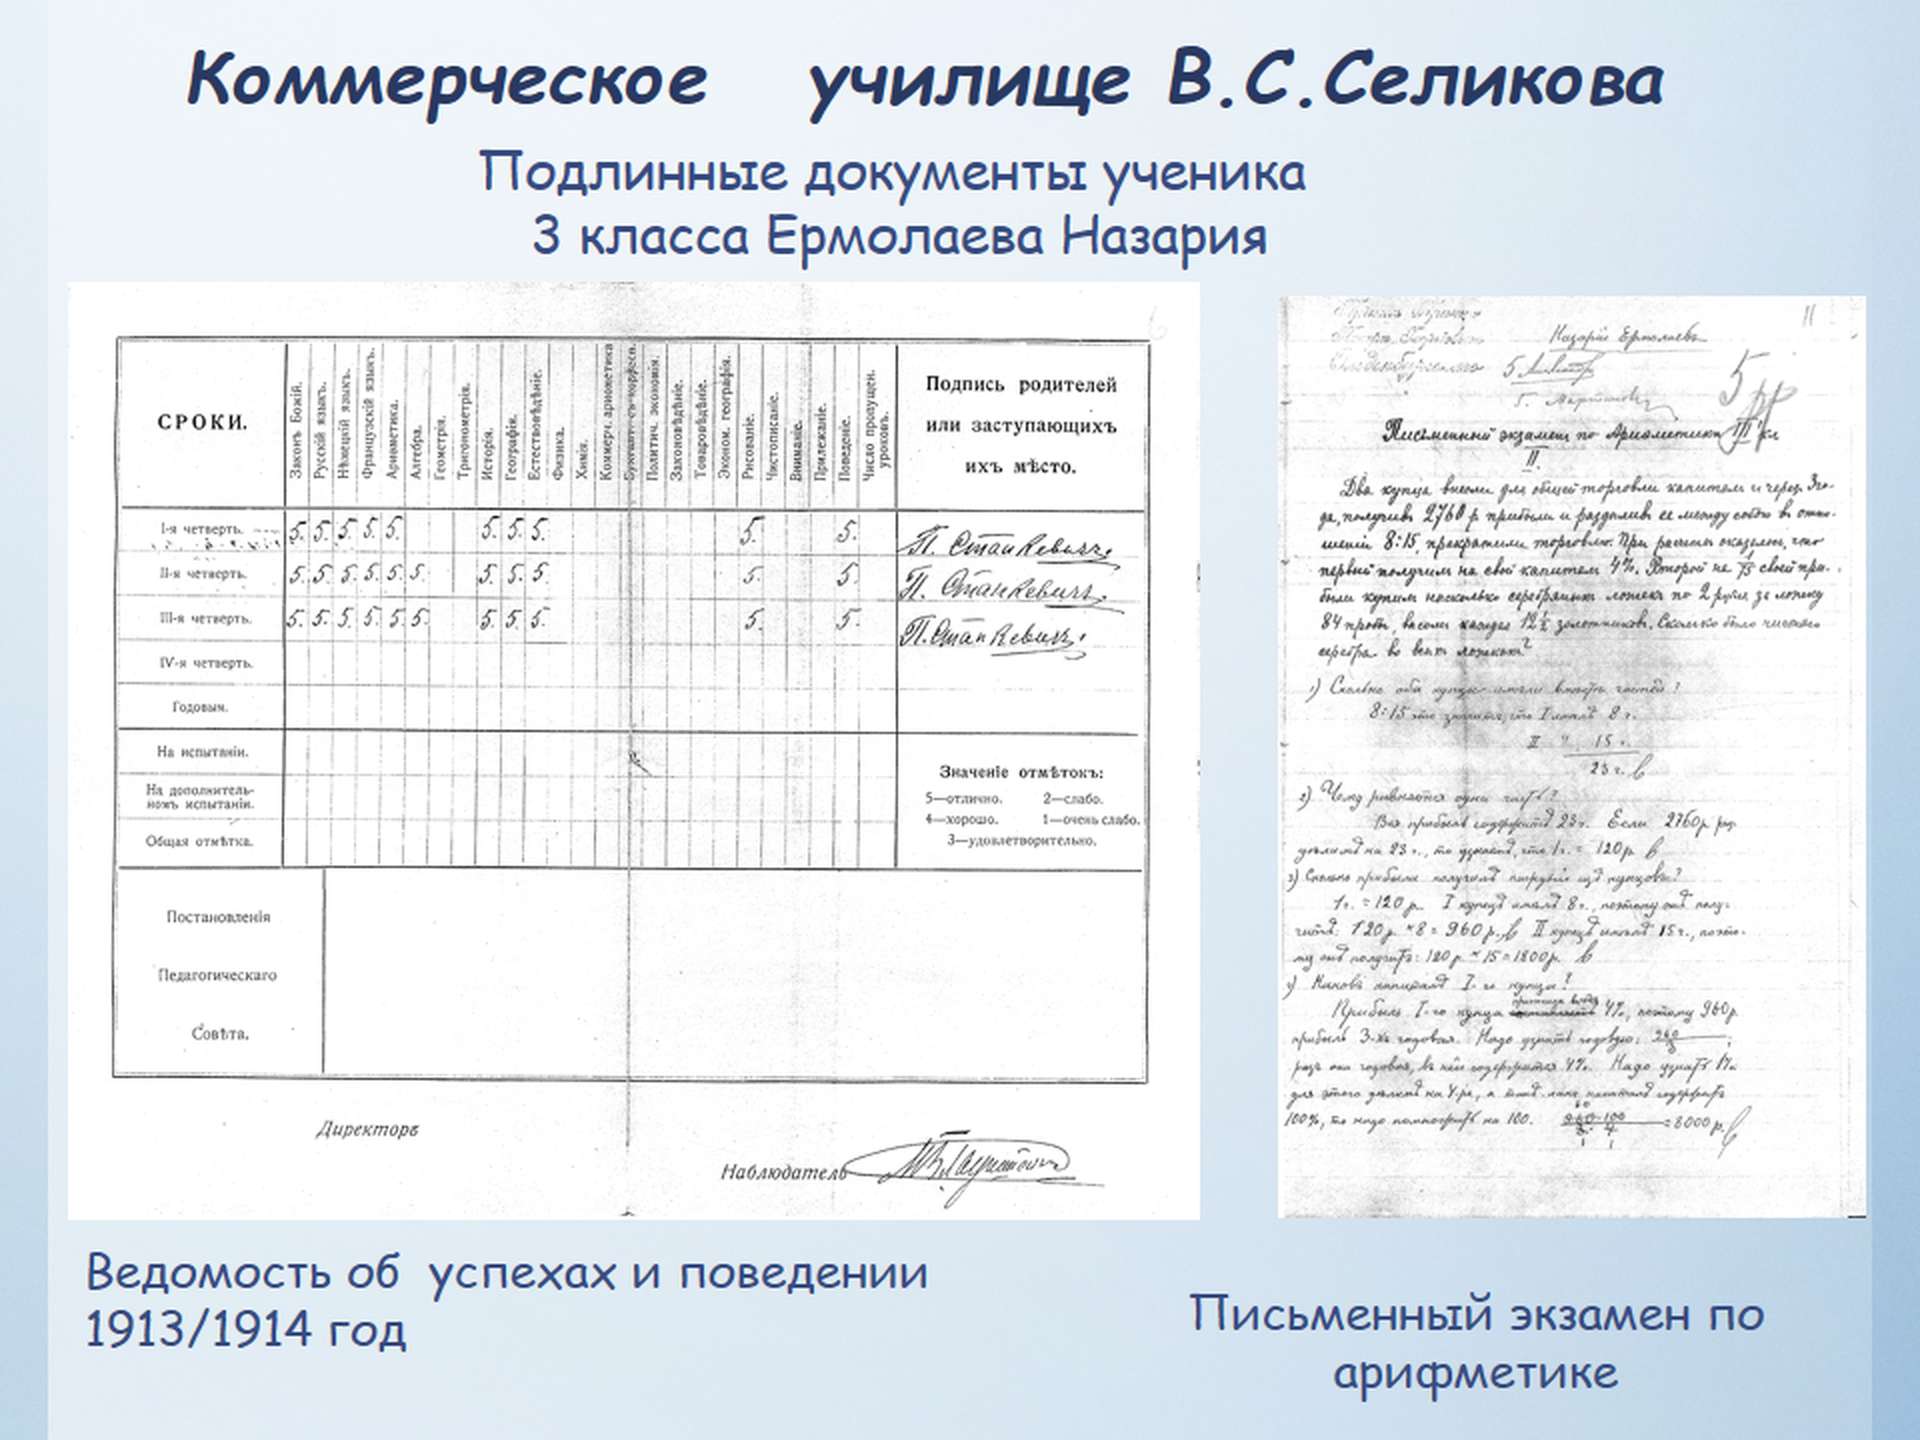 Коммерческое училище В.С.Селикова
Подлинные документы ученика
3 класса Ермолаева Назария
СРОКИ.
Законъ Божій.
Русскій языкъ.
Нѣмецкій языкъ.
Французскій языкъ.
Ариѳметика.
Алгебра.
Геометрія.
Тригонометрія.
Исторія.
Географія.
Естествовѣдѣніе.
Физика.
Химія.
Коммерч. ариѳметика
Бухгалт. съ корресп.
Политич. экономія.
Законовѣдѣніе.
Товаровѣдѣніе.
Эконом. географія.
Рисованіе.
Чистописаніе.
Вниманіе.
Прилежаніе.
Поведеніе.
Число пропущен.
уроковъ.
Подпись родителей
или заступающихъ
ихъ мѣсто.
I-я четверть. 5. 5. 5. 5. 5. 5. 5. 5. 5. 5. П. Станкевичъ
II-я четверть. 5. 5. 5. 5. 5. 5. 5. 5. 5. 5. 5. П. Станкевичъ
III-я четверть. 5. 5. 5. 5. 5. 5. 5. 5. 5. 5. 5. П. Станкевичъ
IV-я четверть.
Годовыя.
На испытаніи.
На дополнитель-
номъ испытаніи.
Общая отмѣтка.
Значеніе отмѣтокъ:
5—отлично. 2—слабо.
4—хорошо. 1—очень слабо.
3—удовлетворительно.
Постановленія
Педагогическаго
Совѣта.
Директоръ
Наблюдатель
Назарій Ермолаевъ
5
Письменный экзамен по Ариѳметики III кл
II.
Два купца внесли для общей торговли капитал и через 3 го-
да, получив 2760 р прибыли и разделив ее между собою в отно-
шеніи 8:15, прекратили торговлю. При разсчете оказалось, что
первый получил на свой капитал 4%. Второй на 1/15 своей при-
были купил несколько серебряных ложек по 2 рубля за ложку
84 пробы, весом каждая 12 1/2 золотников. Сколько было чистого
серебра во всех ложках?
1) Сколько оба купца имели вместе частей?
8:15 это значит, что I имелъ 8 ч.
II 15 ч.
23 ч.
2) Чему равняется одна часть?
Вся прибыль содержитъ 23 ч. Если 2760 р раз-
делимъ на 23 ч., то узнаемъ, что 1 ч. = 120 р.
3) Сколько прибыли получилъ каждый изъ купцовъ?
1 ч. = 120 р. I купецъ имелъ 8 ч., поэтому онъ полу-
читъ: 120 р × 8 = 960 р. II купецъ имелъ 15 ч., поэто-
му онъ получитъ: 120 р × 15 = 1800 р.
4) Каковъ капиталъ I-го купца?
Прибыль I-го купца 4%, поэтому 960 р
прибыль 3-хъ годовая. Надо узнать годовую: 960
3
разъ она годовая, въ ней содержится 4%. Надо узнать 1%
для этого делимъ на 4
100%, то надо помножить на 100. = 8000 р.
Ведомость об успехах и поведении
1913/1914 год
Письменный экзамен по
арифметике